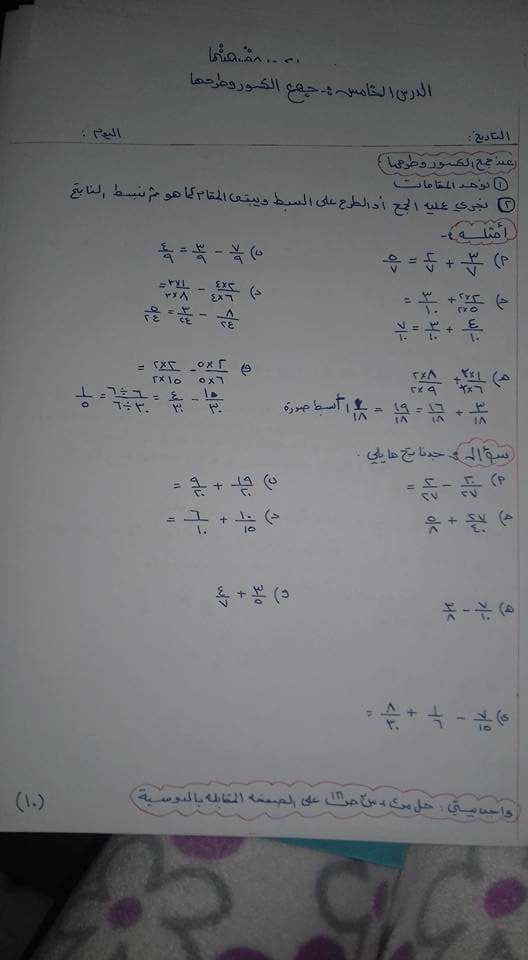 الدرس الخامس :- جمع الكسور وطرحها
التاريخ: اليوم :
عند جمع الكسور وطرحها
① نوحد المقامات
② نجري عليه الجمع أو الطرح على البسط ويبقى المقام كما هو ثم نبسط الناتج
أمثلة :-
٣/٧ + ٢/٧ = ٥/٧
ب) ٧/٩ - ٣/٩ = ٤/٩
ج) ٢×٢/٢×٥ + ٣/١٠ =
٤/١٠ + ٣/١٠ = ٧/١٠
د) ٤×٢/٤×٦ - ٣×١/٣×٨ =
٨/٢٤ - ٣/٢٤ = ٥/٢٤
هـ) ٣×١/٣×٦ + ٢×٨/٢×٩
٣/١٨ + ١٦/١٨ = ١٩/١٨ = ١ ١/١٨ أبسط صورة
و) ٥×٢/٥×٦ - ٢×٢/٢×١٥ =
١٠/٣٠ - ٤/٣٠ = ٦÷٦/٦÷٣٠ = ١/٥
سؤال : جد ناتج ما يلي .
٢٠/٢٧ - ٢/٢٧ =
ب) ١٩/٢٠ + ٩/٢٠ =
ج) ٢٧/٤٠ + ٥/٨
د) ١٠/١٥ + ٦/١٠ =
هـ) ٧/١٠ - ٣/٨
و) ٣/٥ + ٤/٧
٧/١٥ - ١/٦ + ٨/٣٠ =
واجب بيتي : حل على الصفحة المقابلة بالدوسية
(١٠)